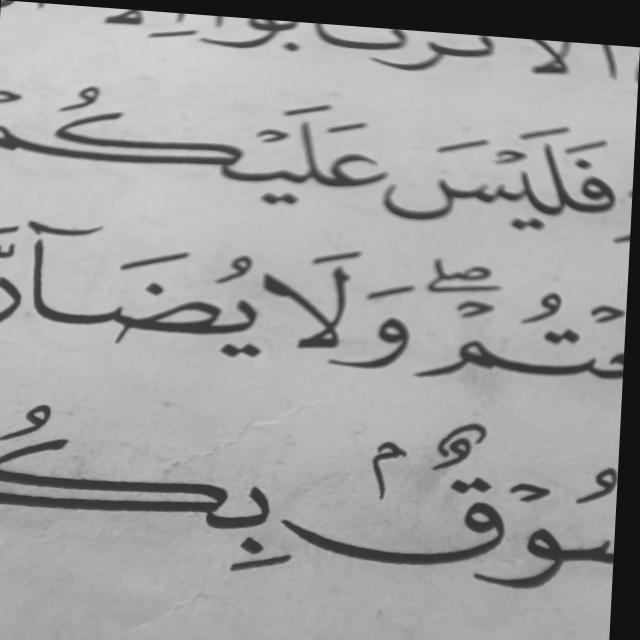 فَلَيْسَ عَلَيْكُمْ
ـعْتُمْ ۖ وَلَا يُضَآرَّ
ـسُوقٌۢ بِكُـ